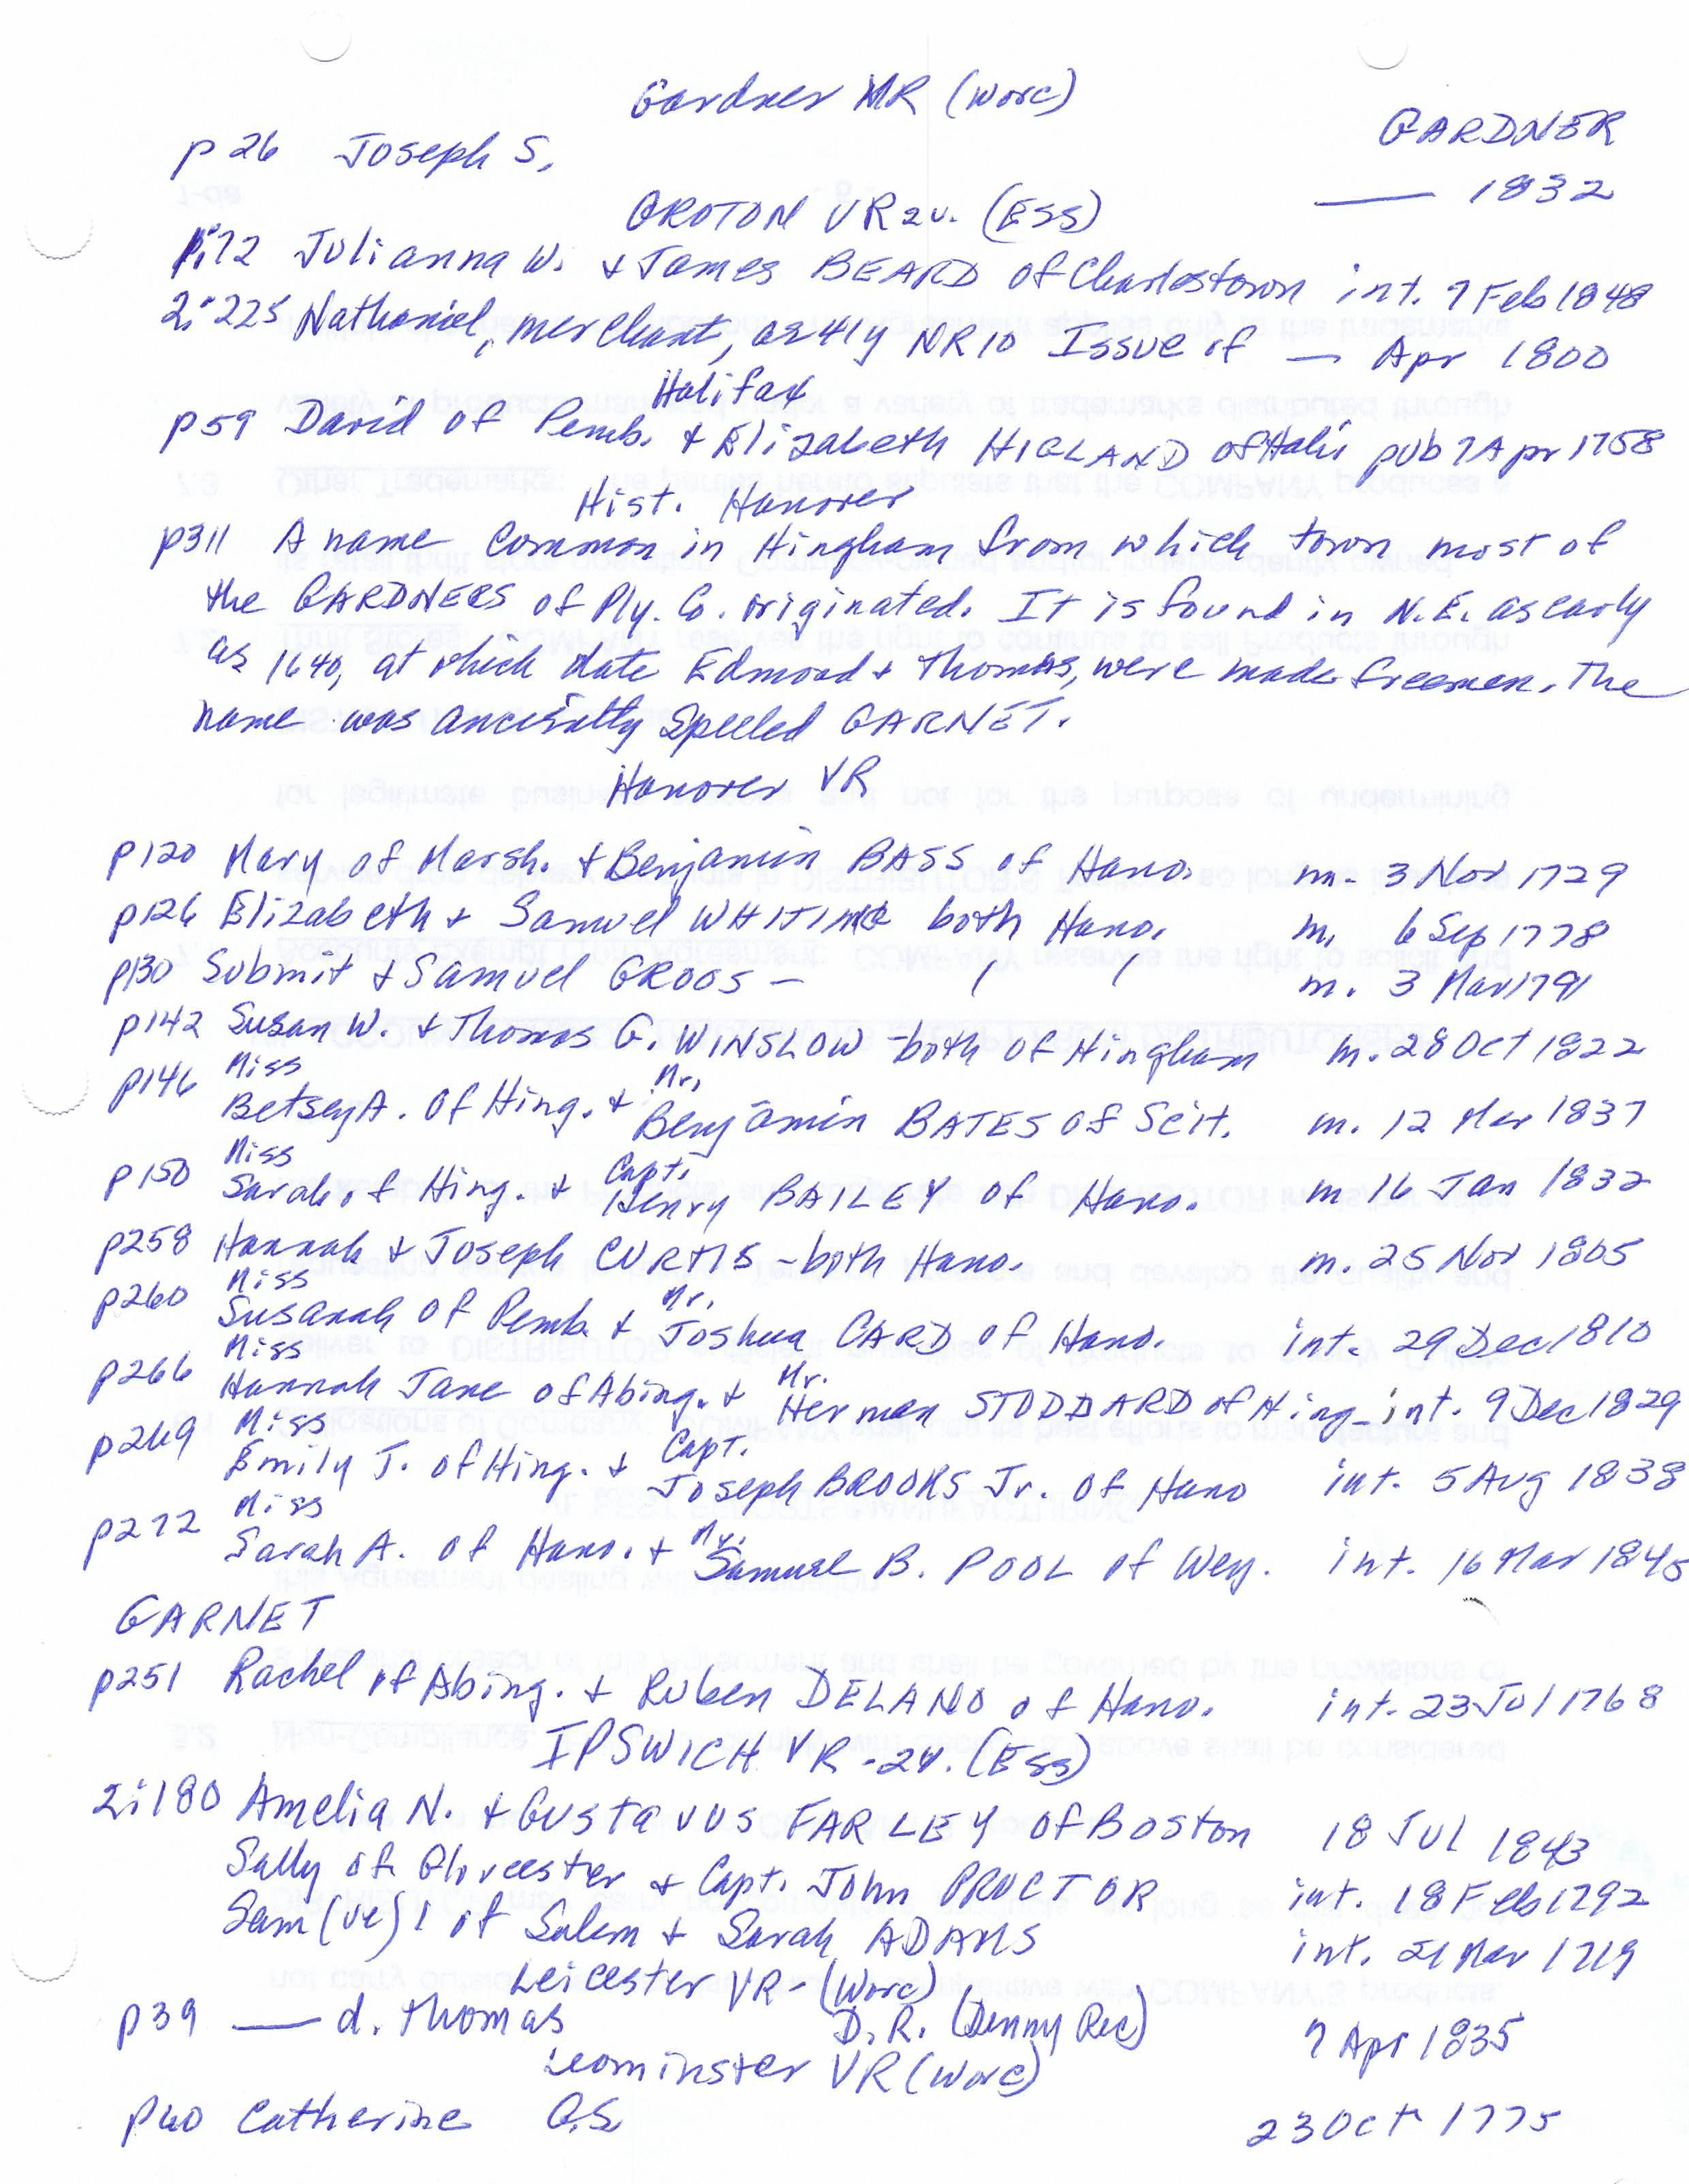 Gardner MR (Worc)
GARDNER
p 26 Joseph S. — 1832
GROTON VR 2v. (ESS)
1:72 Julianna W. + James BEARD of Charlestown int. 7 Feb 1848
2:225 Nathaniel, merchant, as 41y NR10 Issue of — Apr 1800
Halifax
p59 David of Pemb. + Elizabeth HIGLAND of Hali pub 7 Apr 1758
Hist. Hanover
p311 A name common in Hingham from which town most of
the GARDNERS of Ply. Co. originated. It is found in N.E. as early
as 1640, at which date Edmond + Thomas, were made freemen. The
name was anciently spelled GARNET.
Hanover VR
p120 Mary of Marsh. + Benjamin BASS of Hano. m. 3 Nov 1729
p126 Elizabeth + Samuel WHITING both Hano. m. 6 Sep 1778
p130 Submit + Samuel GROOS — ( ( m. 3 Mar 1791
p142 Susan W. + Thomas G. WINSLOW - both of Hingham m. 28 Oct 1822
p146 Miss Mr.
Betsey A. of Hing. + Benjamin BATES of Scit. m. 12 Mar 1837
p150 Miss Capt.
Sarah of Hing. + Henry BAILEY of Hano. m. 16 Jan 1832
p258 Hannah + Joseph CURTIS - both Hano. m. 25 Nov 1805
p260 Miss Mr.
Susanah of Pemb. + Joshua CARD of Hano. int. 29 Dec 1810
p266 Miss Mr.
Hannah Jane of Abing. + Herman STODDARD of Hing_int. 9 Dec 1829
p269 Miss Capt.
Emily J. of Hing. + Joseph BROOKS Jr. of Hano int. 5 Aug 1838
p272 Miss Mr.
Sarah A. of Hano. + Samuel B. POOL of Wey. int. 16 Mar 1845
GARNET
p251 Rachel of Abing. + Ruben DELANO of Hano. int. 23 Jul 1768
IPSWICH VR - 2v. (Ess)
2:180 Amelia N. + Gustavus FARLEY of Boston 18 JUL 1843
Sally of Glorcester + Capt. John PROCTOR int. 18 Feb 1792
Sam(ue)l of Salem + Sarah ADAMS int. 21 Mar 1719
Leicester VR - (Worc)
p39 — d. Thomas D.R. (Denny Rec) 7 Apr 1835
Leominster VR (Worc)
p60 Catherine G.S. 23 Oct 1775